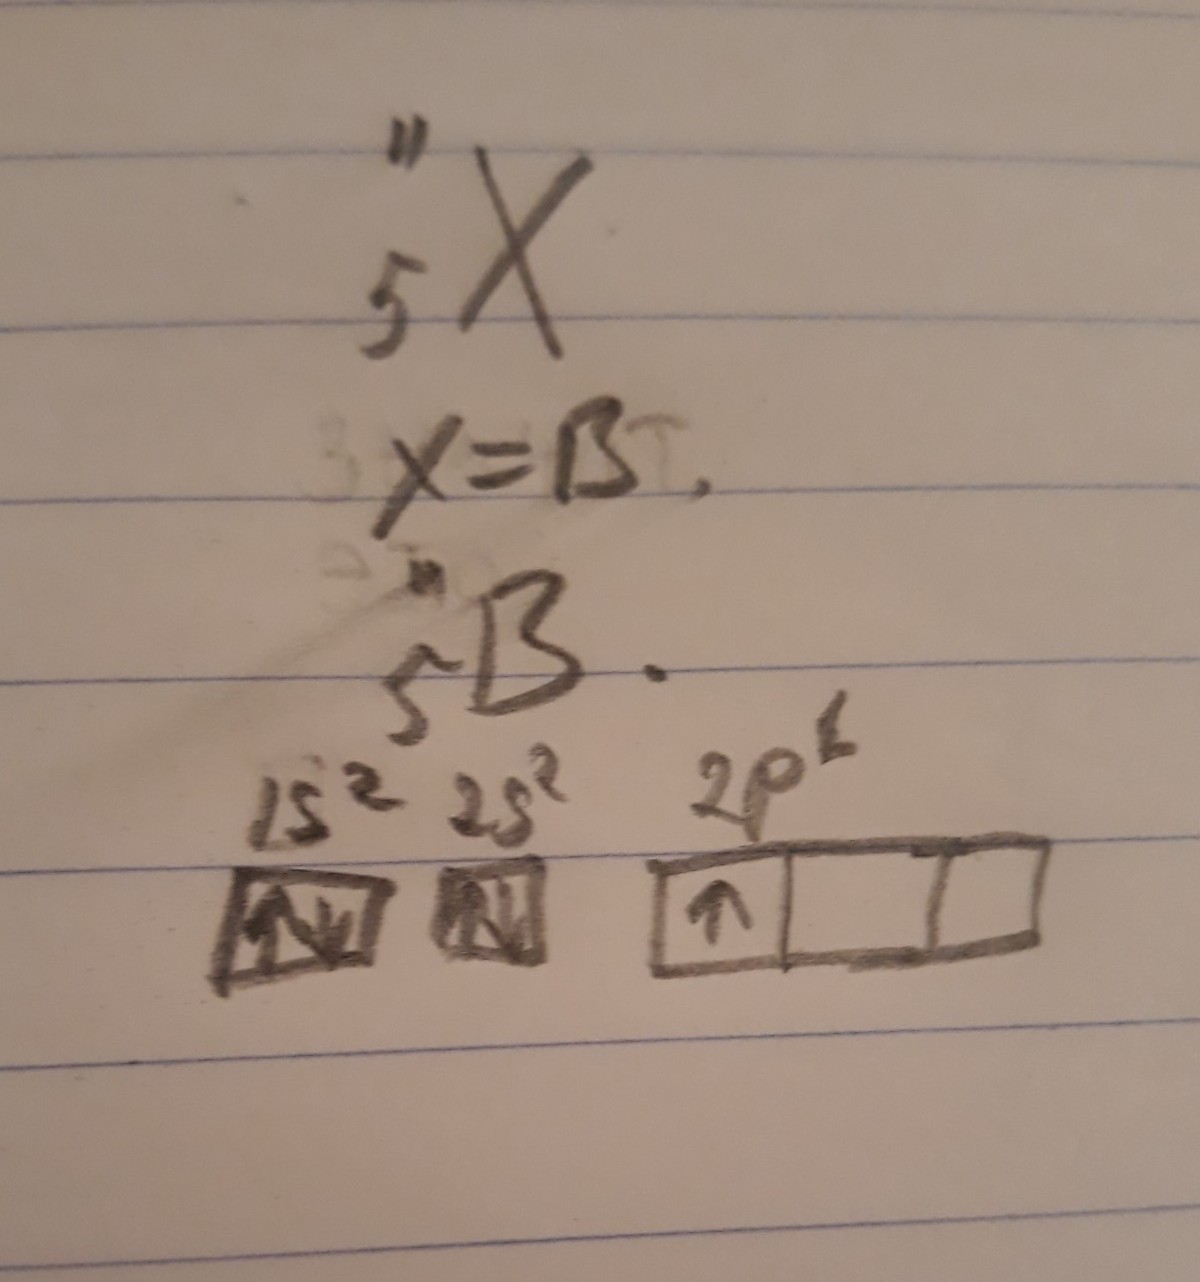 ¹¹₅X
X = B.
¹¹₅B.
1s² 2s² 2p¹
↑↓ ↑↓ ↑